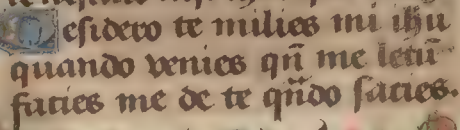 Desidero te milies mi ihu
quando venies qn̄ me letū
facies me de te qn̄do sacies.